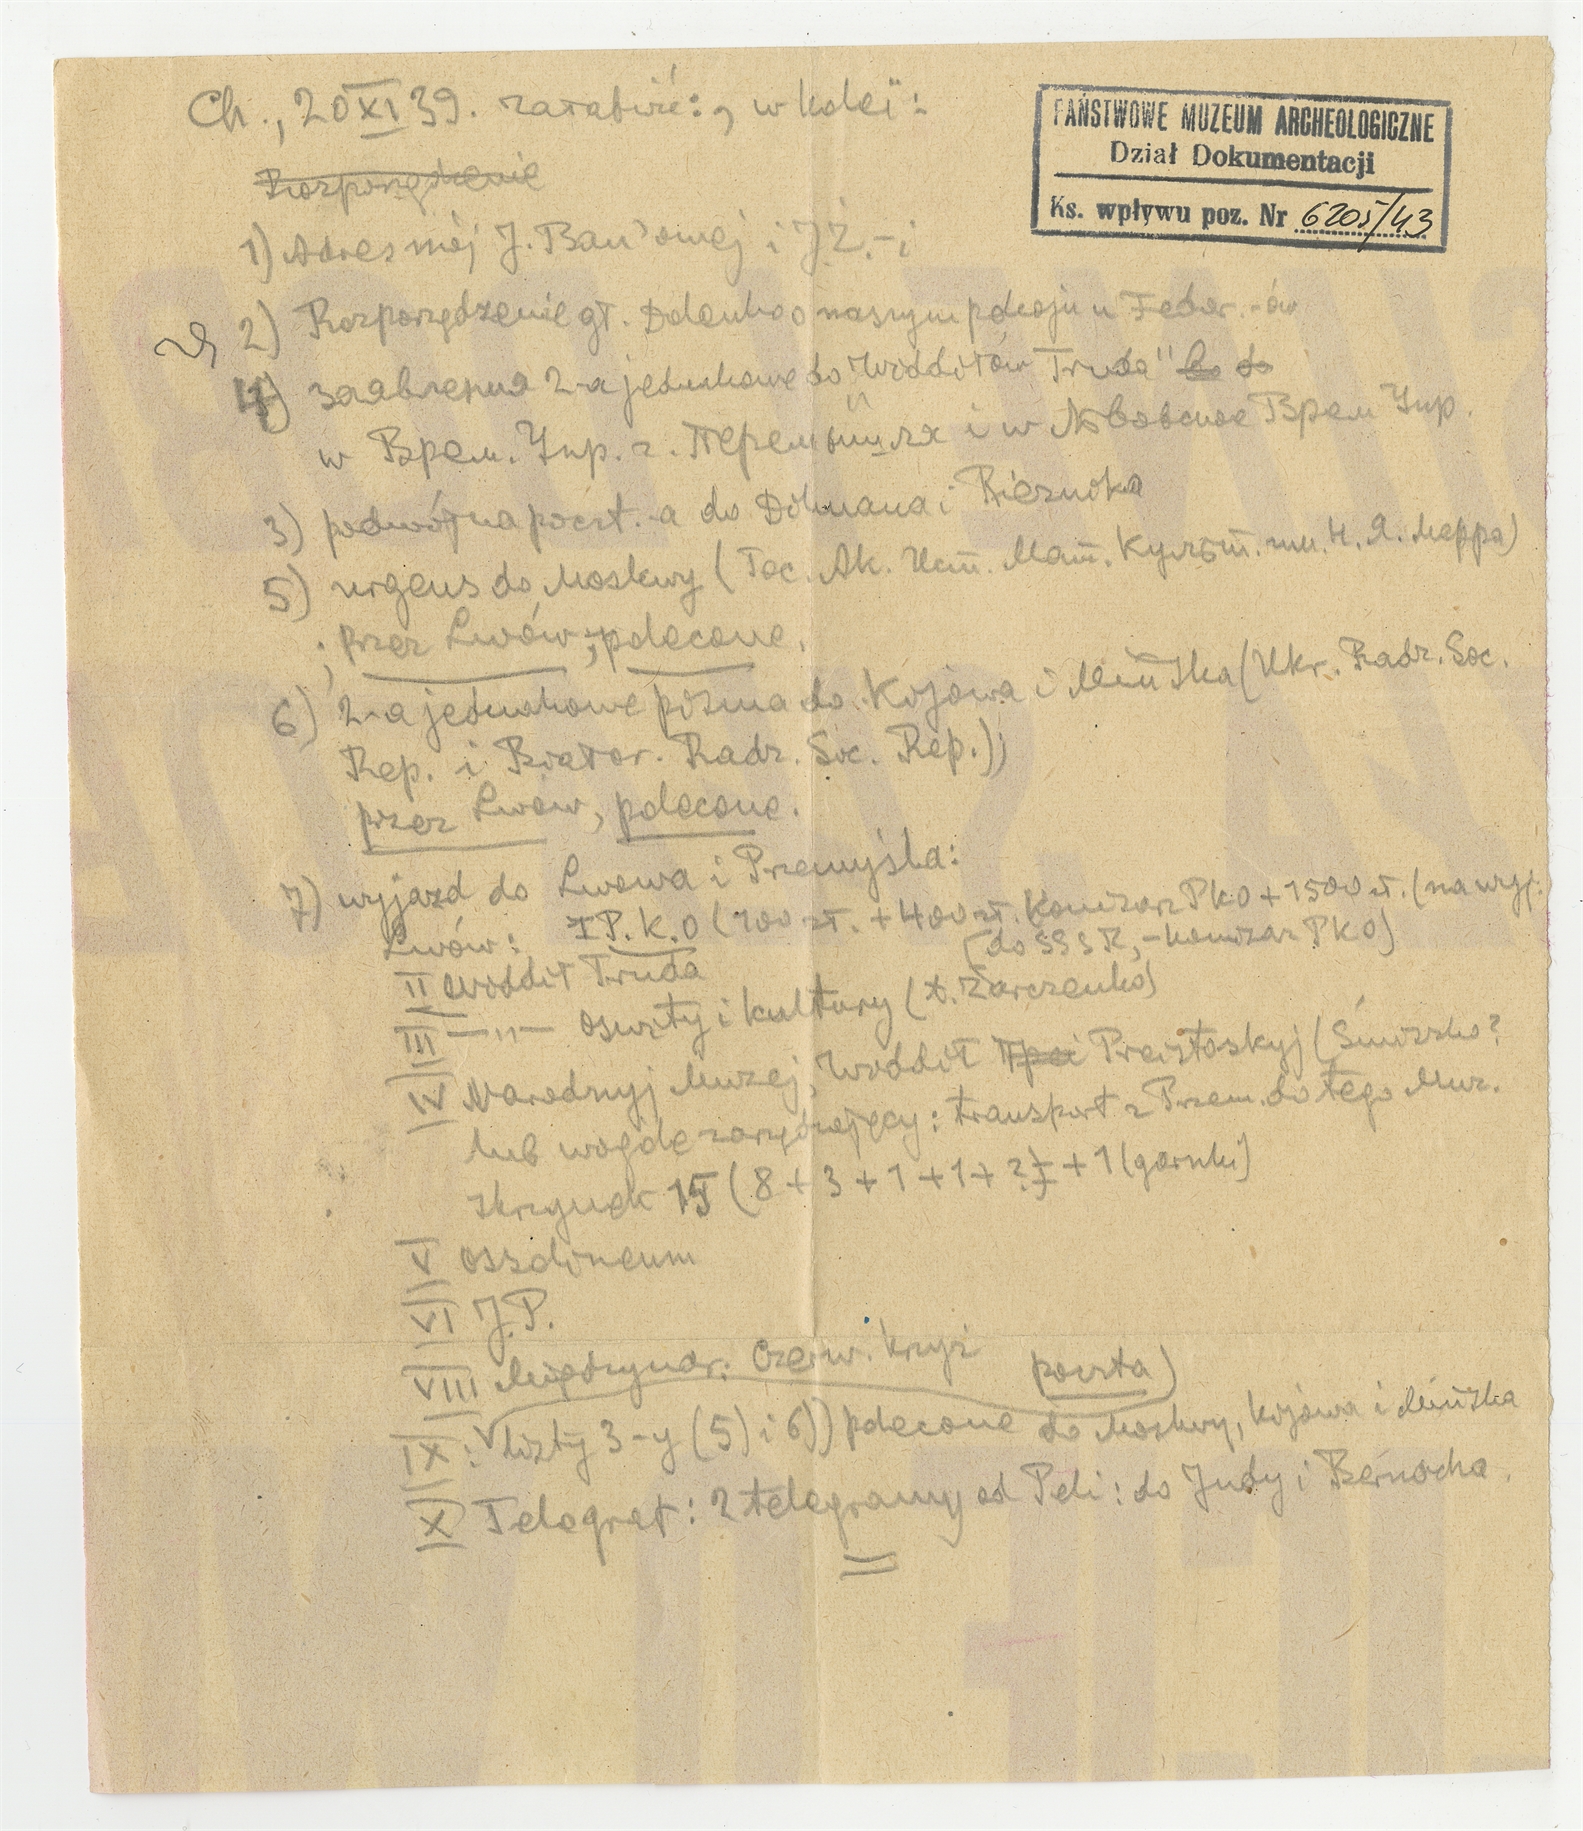 Ch., 20 XI 39. załatwić: , w kolei:
PAŃSTWOWE MUZEUM ARCHEOLOGICZNE
Dział Dokumentacji
Ks. wpływu poz. Nr 6205/43
Rozporządzenie
1) Adres mój J. Ban'owej i J.Ż.-i
2) Rozporządzenie gł. Dolenko o naszym pokoju u Feder.-ów
4) Заявления 2-a jednakowe do "Widdiłów Truda" do
w Врем. Упр. г. Перемышлях i w Львовское Врем Упр.
3) podwójna poczt.-a do Dolmana i Biernoka
5) urgens do Moskwy (Гос. Ак. Ист. Мат. Культ. им. Н. Я. Марра)
; przez Lwów; polecone.
6) 2-a jednakowe pisma do Kijowa i Mińska (Ukr. Radz. Soc.
Rep. i Białor. Radz. Soc. Rep.);
przez Lwów, polecone.
7) wyjazd do Lwowa i Przemyśla:
Lwów: I P.K.O (700 zł. + 400 zł. Komisarz PKO + 1500 zł. (na wyj.
(do SSSR, - komisar PKO)
II Widdił Truda
III —„— oswity i kultury (t. Zarczenko)
IV Narodnyj Muzej, Widdił (Śmiszko?
lub wogóle zarządzający: transport z Przem. do tego Muz.
skrzynek 15 (8 + 3 + 1 + 1 + 2 + 1 (garnki)
V Ossolineum
VI J.P.
VIII Międzynar. Czerw. krzyż
poczta)
IX: listy 3-y (5) i 6)) polecone do Moskwy, Kijowa i Mińska
X Telegraf: 2 telegramy od Peli: do Judy i Bernocha.